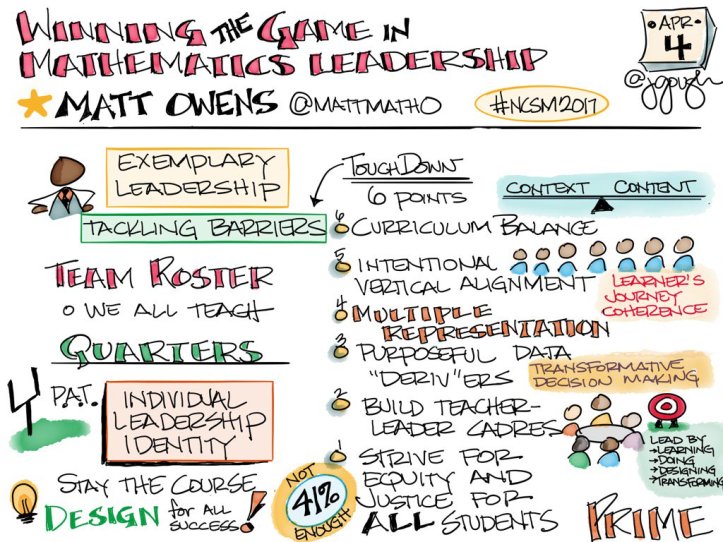 WINNING THE GAME IN
MATHEMATICS LEADERSHIP
MATT OWENS @MATTMATHO
#NCSM2017
APR
4
@jgough
EXEMPLARY
LEADERSHIP
TACKLING BARRIERS
TEAM ROSTER
WE ALL TEACH
QUARTERS
P.A.T.
INDIVIDUAL
LEADERSHIP
IDENTITY
STAY THE COURSE
DESIGN for ALL
SUCCESS!
TOUCHDOWN
6 POINTS
CONTEXT CONTENT
6 CURRICULUM BALANCE
5 INTENTIONAL
VERTICAL ALIGNMENT
LEARNER'S
JOURNEY
COHERENCE
4 MULTIPLE
REPRESENTATION
3 PURPOSEFUL DATA
"DERIV"ERS
TRANSFORMATIVE
DECISION MAKING
2 BUILD TEACHER-
LEADER CADRES
LEAD BY
→LEARNING
→DOING
→DESIGNING
→TRANSFORMING
1 STRIVE FOR
EQUITY AND
JUSTICE FOR
ALL STUDENTS
NOT
41%
ENOUGH
PRIME